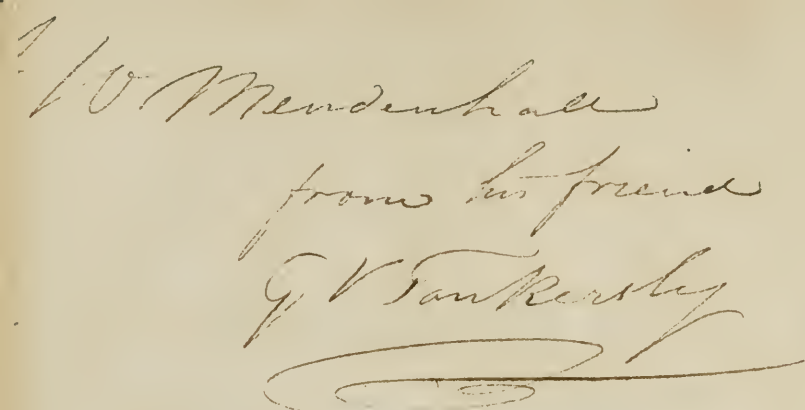 W. Mendenhall
from his friend
G V Tankersley